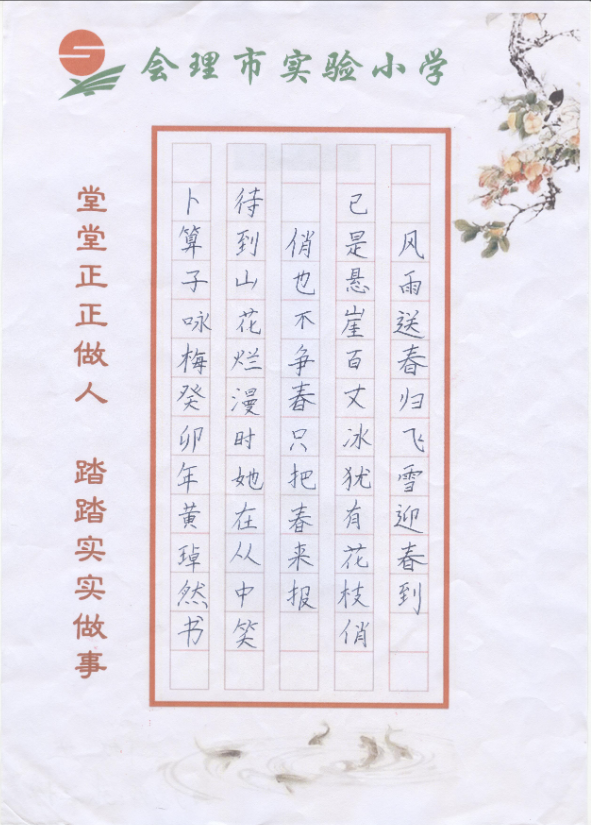 会理市实验小学
风雨送春归飞雪迎春到
已是悬崖百丈冰犹有花枝俏
俏也不争春只把春来报
待到山花烂漫时她在从中笑
卜算子咏梅癸卯年黄琸然书
堂堂正正做人 踏踏实实做事